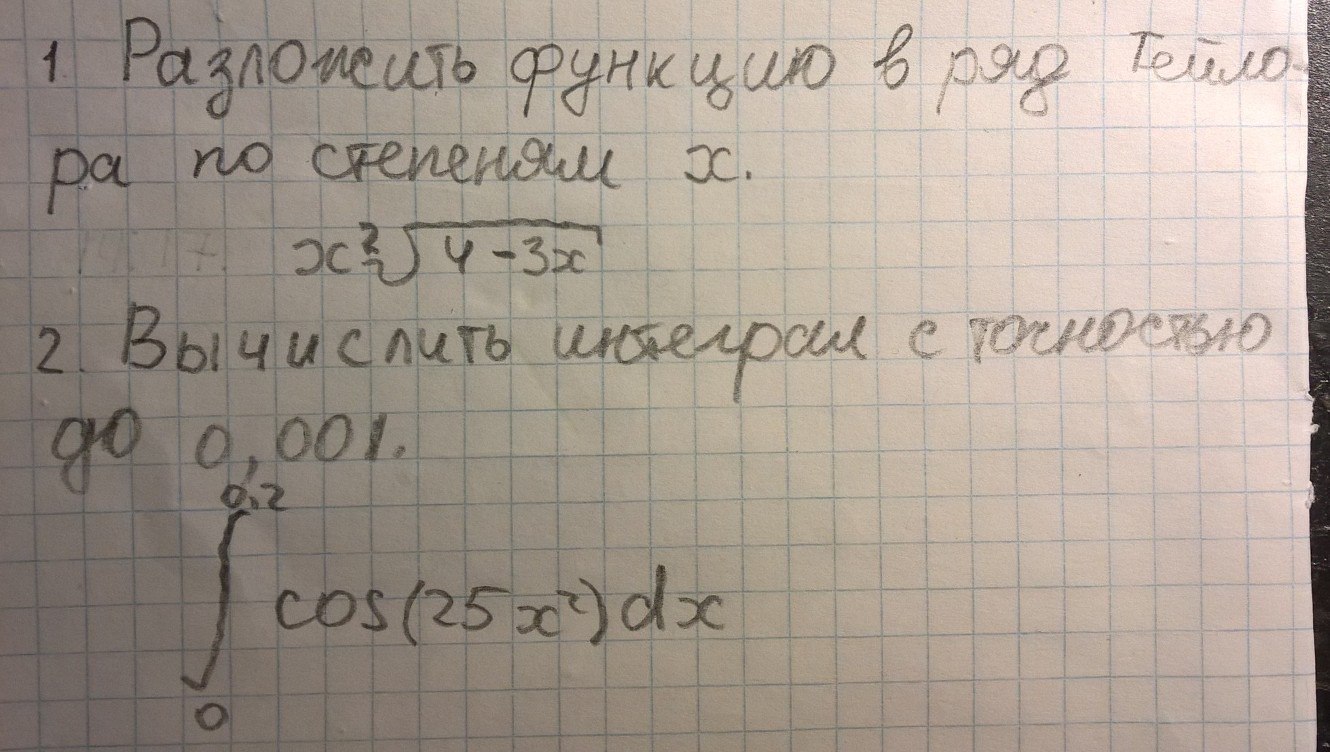 1. Разложить функцию в ряд Тейло-
ра по степеням x.
x²√(4-3x)
2. Вычислить интеграл с точностью
до 0,001.
∫₀^0,2 cos(25x²)dx